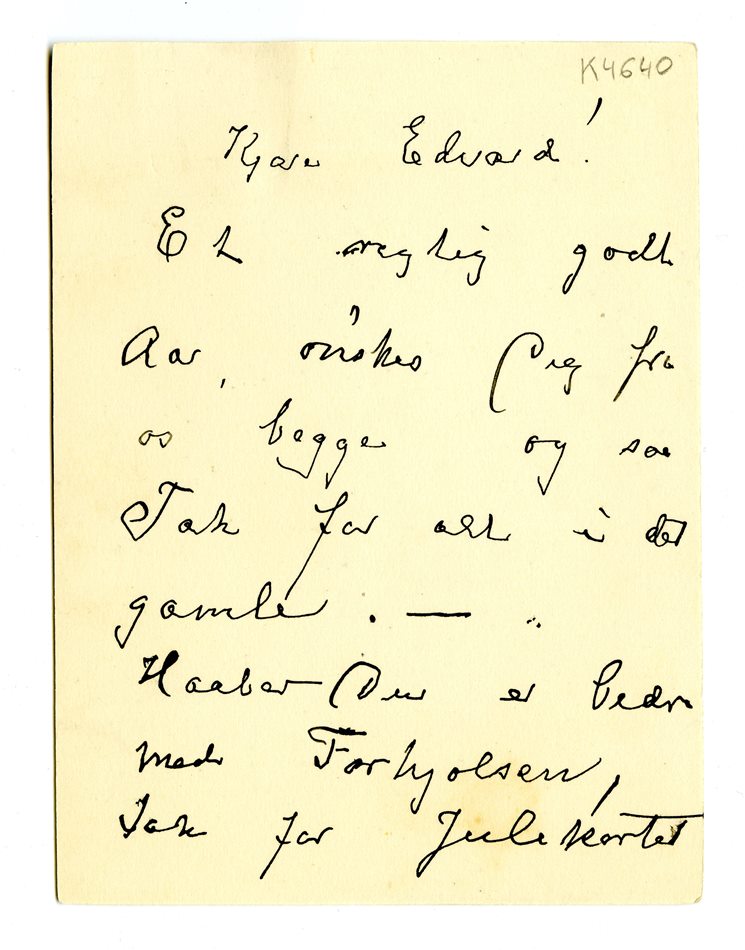 K4640
Kjære Edvard!
Et rigtig godt
Aar, ønskes Dig fra
os begge og saa
Tak for alt i det
gamle. — "
Haaber Du er bedre
med Forkjølsen,
Tak for Julekortet